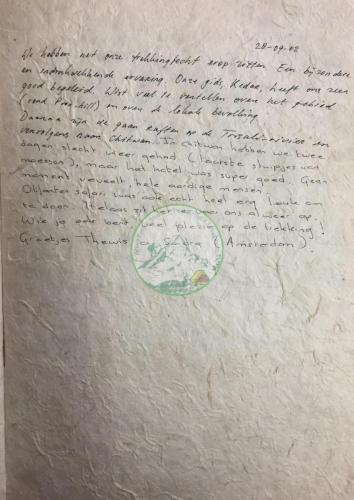 28-09-02
We hebben net onze trekkingtocht erop zitten. Een bijzondere
en indrukwekkende ervaring. Onze gids, Kedar, heeft ons zeer
goed begeleid. Wist veel te vertellen over het gebied
(rond Poon-hill) en over de lokale bevolking.
Daarna zijn we gaan raften op de en
vervolgens naar Chitwan. In Chitwan hebben we twee
dagen slecht weer gehad (laatste stuipjes van
moesson), maar het hotel was super goed. Geen
moment verveelt, hele aardige mensen.
Olifanten safari was ook echt heel erg leuk om
te doen. Helaas zit het er voor ons alweer op.
Wie je ook bent, veel plezier op de trekking!
Groetjes en Sandra (Amsterdam)